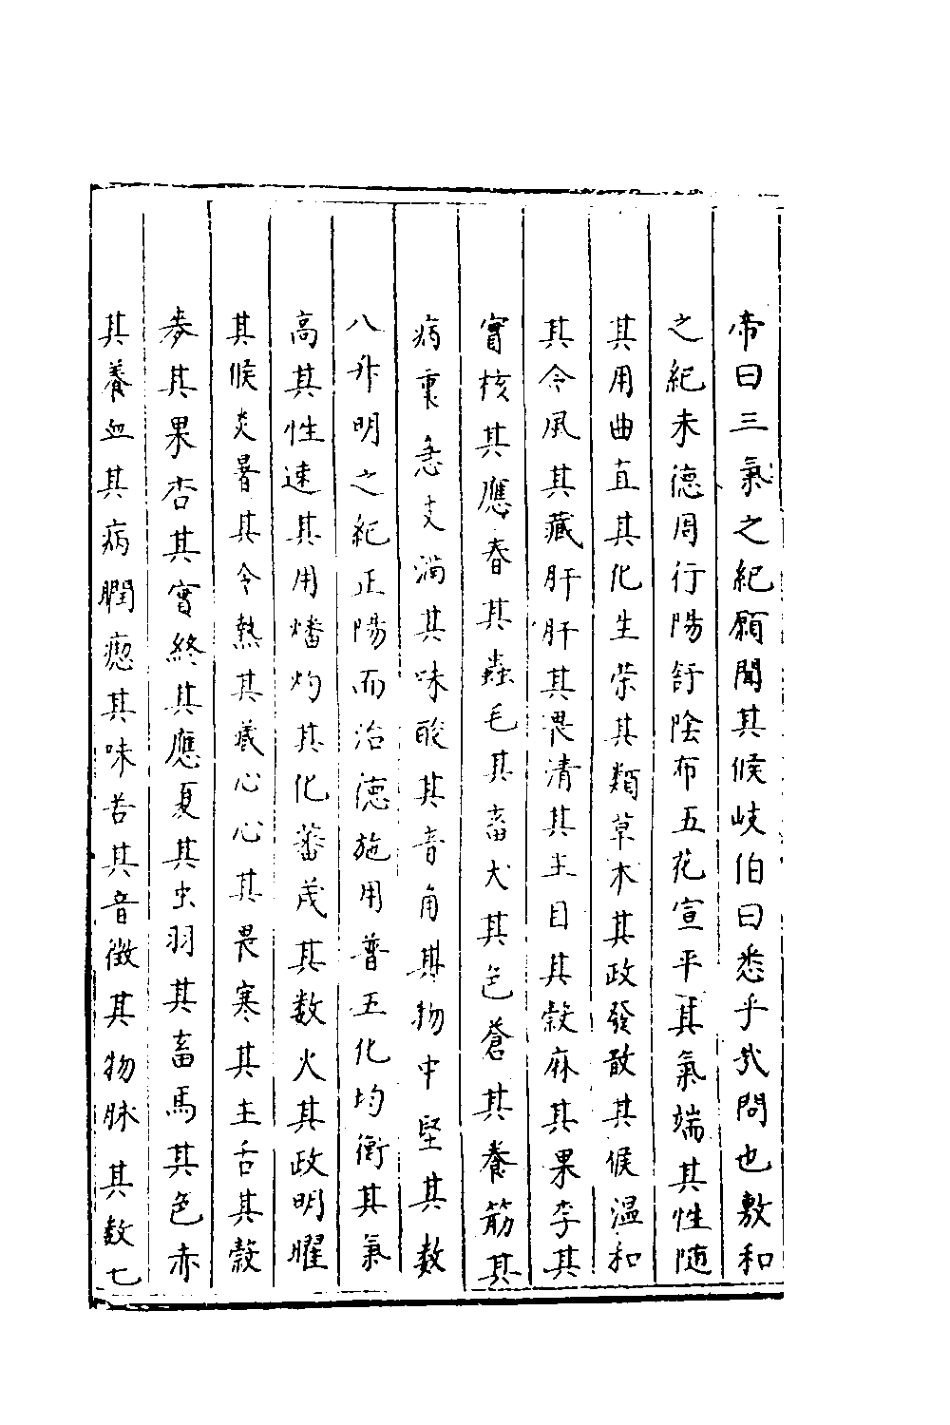 帝曰三氣之紀願聞其候岐伯曰悉乎哉問也敷和
之紀木德周行陽舒陰布五花宣平其氣端其性随
其用曲直其化生荣其類草木其政發散其候温和
其令風其藏肝肝其畏清其主目其穀麻其果李其
實核其應春其蟲毛其畜犬其色蒼其養筋其
病裏急支满其味酸其音角其物中堅其数
八升明之紀正陽而治德施用普五化均衡其氣
高其性速其用燔灼其化蕃茂其数火其政明曜
其候炎暑其令熱其藏心心其畏寒其主舌其穀
麥其果杏其實終其應夏其虫羽其畜馬其色赤
其養血其病瞤瘛其味苦其音徴其物脉其数七